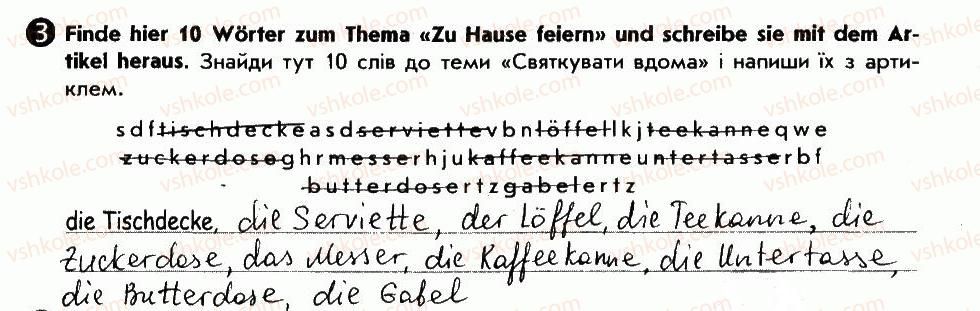 3 Finde hier 10 Wörter zum Thema «Zu Hause feiern» und schreibe sie mit dem Ar-
tikel heraus. Знайди тут 10 слів до теми «Святкувати вдома» і напиши їх з арти-
клем.
sdftischdeckeasdserviettevbnlöffellkjteekanneqwe
zuckerdoseghrmesserhjukaffeekanneuntertasserbf
butterdosertzgabelertz
die Tischdecke, die Serviette, der Löffel, die Teekanne, die
Zuckerdose, das Messer, die Kaffeekanne, die Untertasse,
die Butterdose, die Gabel